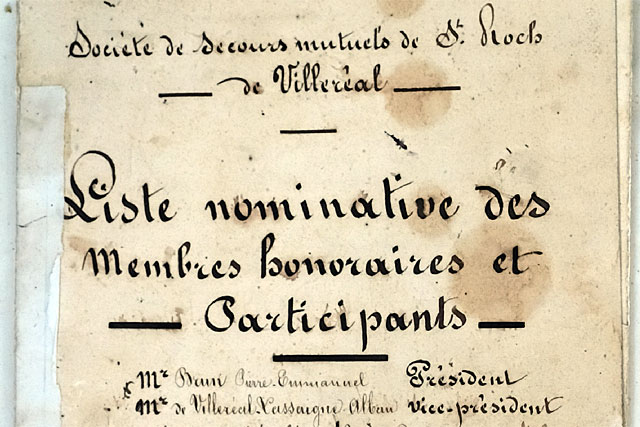 Société de Secours mutuels de St. Roch
de Villeréal
Liste nominative des
Membres honoraires et
Participants
Mr Pierre-Emmanuel Président
Mr de Villeréal-Lassaigne-Alban vice-président